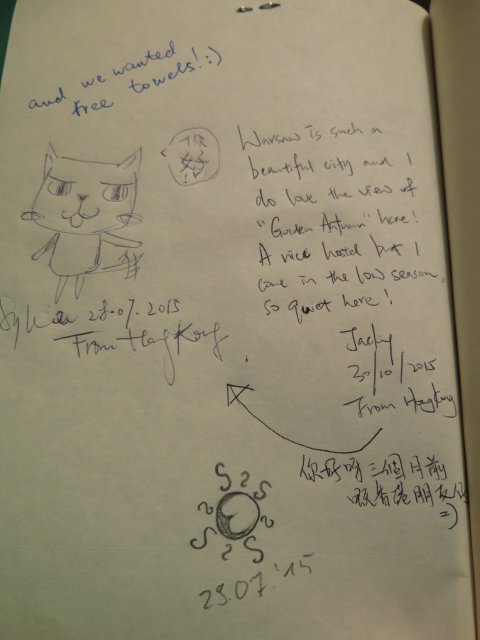 and we wanted
free towels!:)
你
好
!
Warsaw is such a
beautiful city and I
do love the view of
"Golden Autumn" here!
A nice hostel but I
come in the low season,
so quiet here!
28.07.2015
From Hong Kong
Jacky
30/10/2015
From Hong Kong
你好呀三個月前
嘅香港朋友仔
=)
29.07.'15